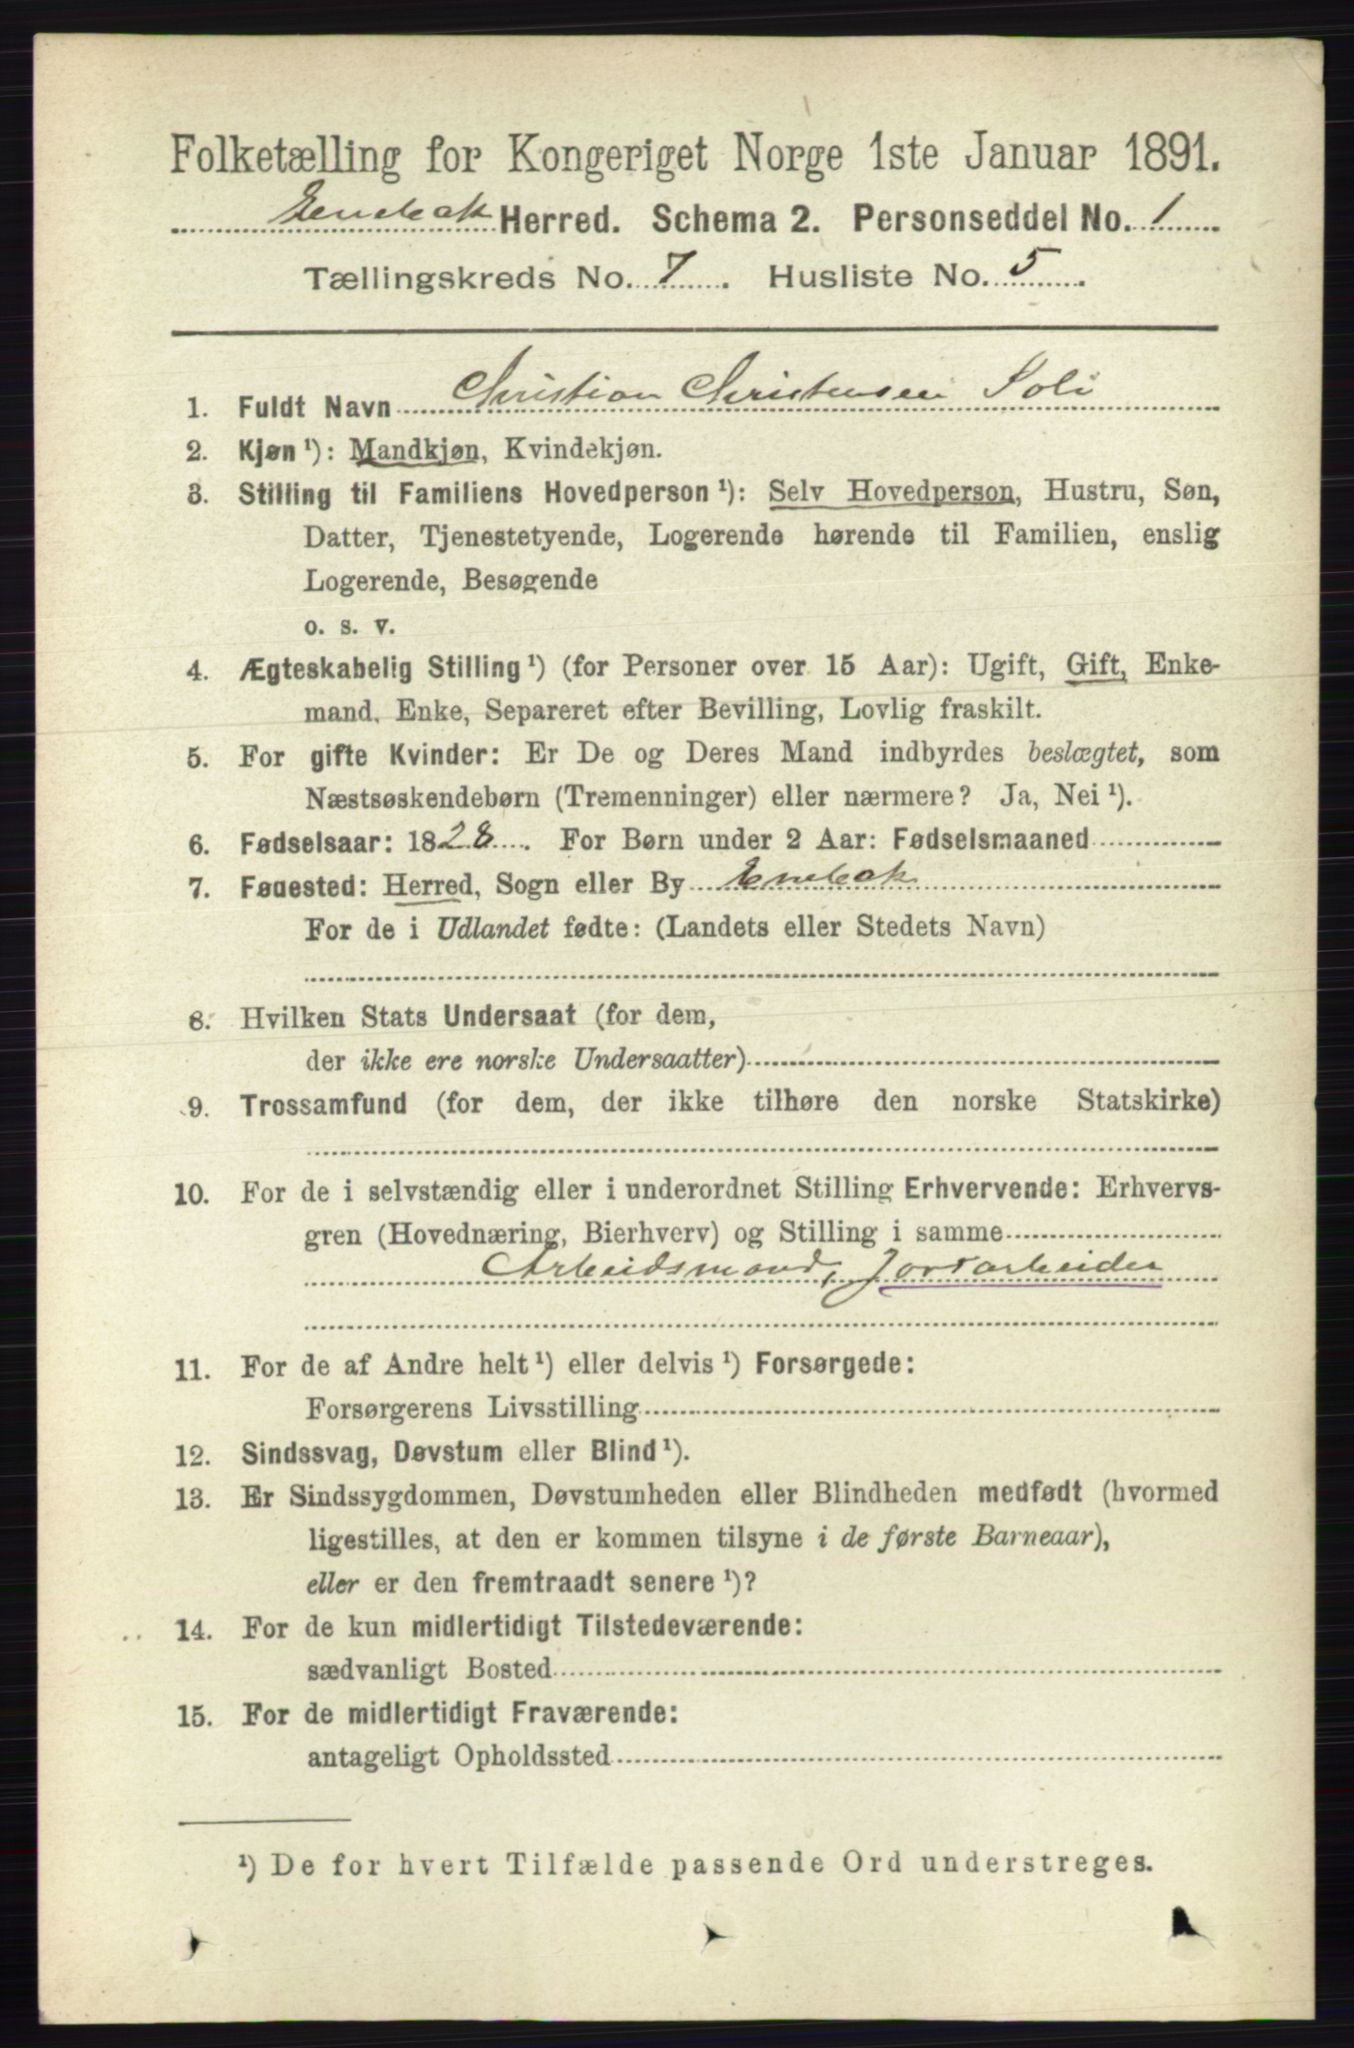 Folketælling for Kongeriget Norge 1ste Januar 1891.
Enebak Herred. Schema 2. Personseddel No. 1
Tællingskreds No. 7. Husliste No. 5.
1. Fuldt Navn Christian Christensen Soli
2. Kjøn¹): Mandkjøn, Kvindekjøn.
3. Stilling til Familiens Hovedperson¹): Selv Hovedperson, Hustru, Søn,
Datter, Tjenestetyende, Logerende hørende til Familien, enslig
Logerende, Besøgende
o. s. v.
4. Ægteskabelig Stilling¹) (for Personer over 15 Aar): Ugift, Gift, Enke-
mand, Enke, Separeret efter Bevilling, Lovlig fraskilt.
5. For gifte Kvinder: Er De og Deres Mand indbyrdes beslægtet, som
Næstsøskendebørn (Tremenninger) eller nærmere? Ja, Nei¹).
6. Fødselsaar: 1828. For Børn under 2 Aar: Fødselsmaaned
7. Fødested: Herred, Sogn eller By Enebak
For de i Udlandet fødte: (Landets eller Stedets Navn)
8. Hvilken Stats Undersaat (for dem,
der ikke ere norske Undersaatter)
9. Trossamfund (for dem, der ikke tilhøre den norske Statskirke)
10. For de i selvstændig eller i underordnet Stilling Erhvervende: Erhvervs-
gren (Hovednæring, Bierhverv) og Stilling i samme
Arbeidsmand, Jordarbeider
11. For de af Andre helt¹) eller delvis¹) Forsørgede:
Forsørgerens Livsstilling
12. Sindssvag, Døvstum eller Blind¹).
13. Er Sindssygdommen, Døvstumheden eller Blindheden medfødt (hvormed
ligestilles, at den er kommen tilsyne i de første Barneaar),
eller er den fremtraadt senere¹)?
14. For de kun midlertidigt Tilstedeværende:
sædvanligt Bosted
15. For de midlertidigt Fraværende:
antageligt Opholdssted
¹) De for hvert Tilfælde passende Ord understreges.